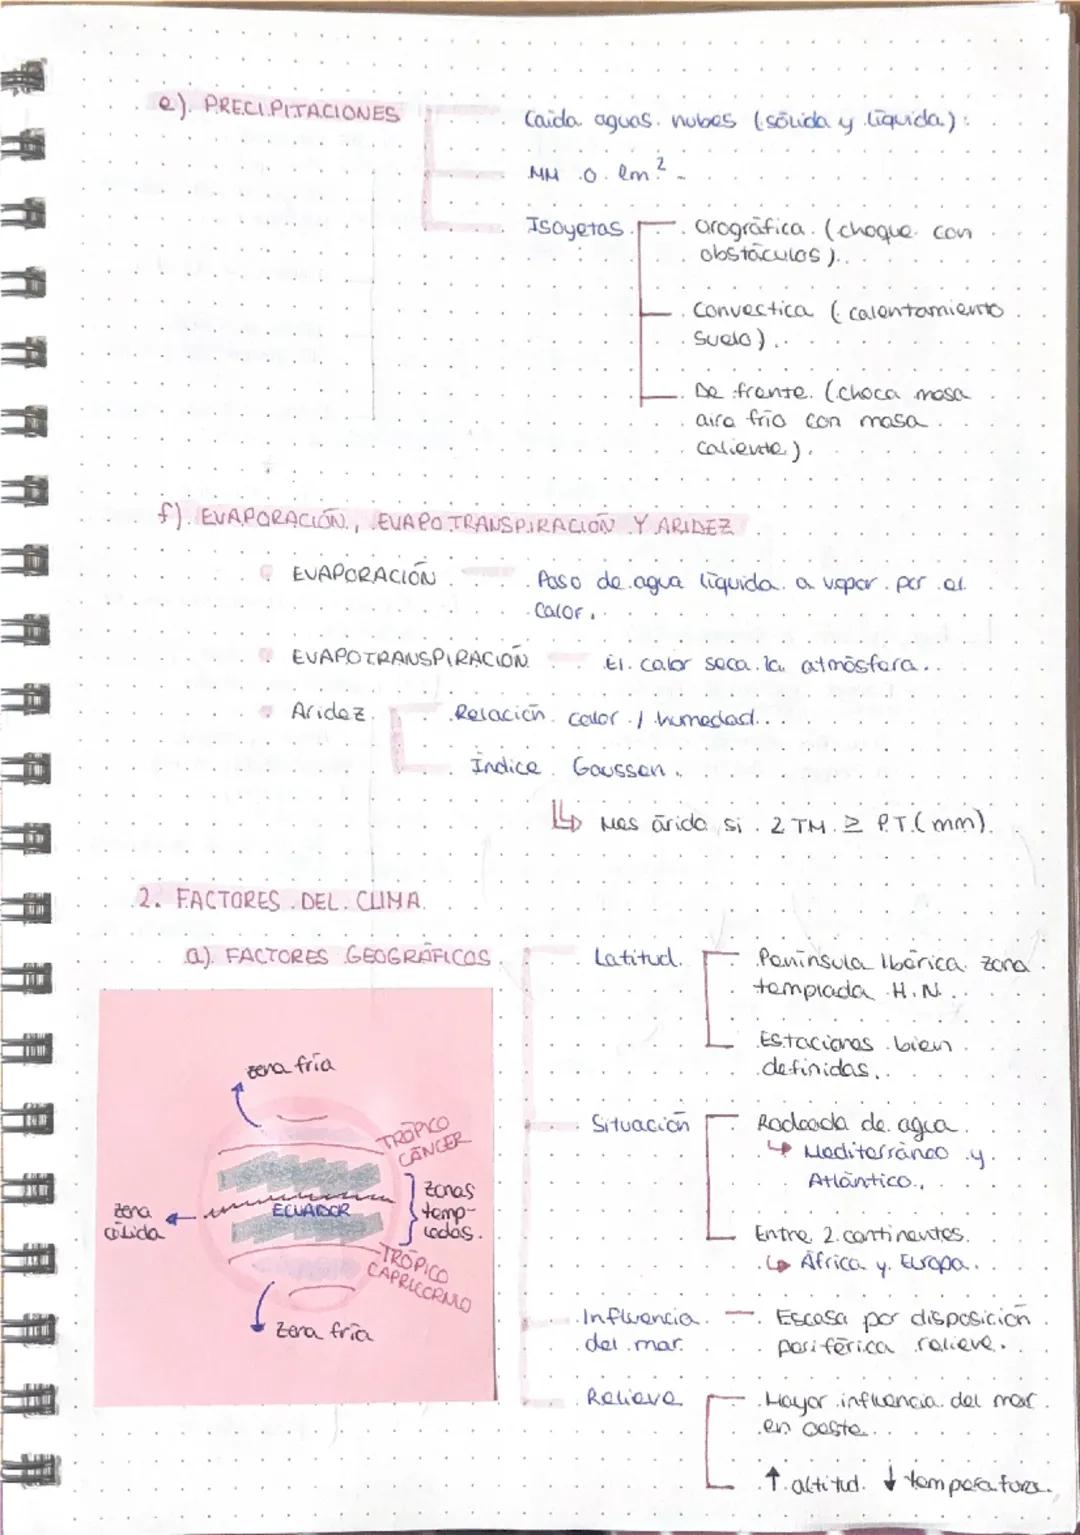 e). PRECIPITACIONES
Caida aguas nubes (sólida y líquida):
MM o lm².
Isoyetas
Orográfica (choque con
obstáculos).
Convectica (calentamiento
suelo).
De frente (choca masa
aire frío con masa
caliente).
f). EVAPORACIÓN, EVAPOTRANSPIRACIÓN Y ARIDEZ
EVAPORACIÓN
Paso de agua líquida a vapor por el
calor.
EVAPOTRANSPIRACIÓN
El calor seca la atmósfera.
Aridez
Relación calor / humedad.
Índice Gaussen.
↳ Mas árido si 2 TM ≥ P.T.(mm).
2. FACTORES DEL CLIMA
a). FACTORES GEOGRÁFICOS
Latitud.
Península Ibérica zona
templada H.N.
Estaciones bien
definidas.
Situación
Rodeada de agua
↳ Mediterráneo y
Atlántico.
Entre 2 continentes.
↳ África y Europa.
Influencia
del mar.
Escasa por disposición
periférica relieve.
Relieve
Mayor influencia del mar
en costa.
↑ altitud ↓ temperatura.
zona fría
TRÓPICO
CÁNCER
zona
cálida
ECUADOR
zonas
temp-
ladas.
TRÓPICO
CAPRICORNIO
zona fría